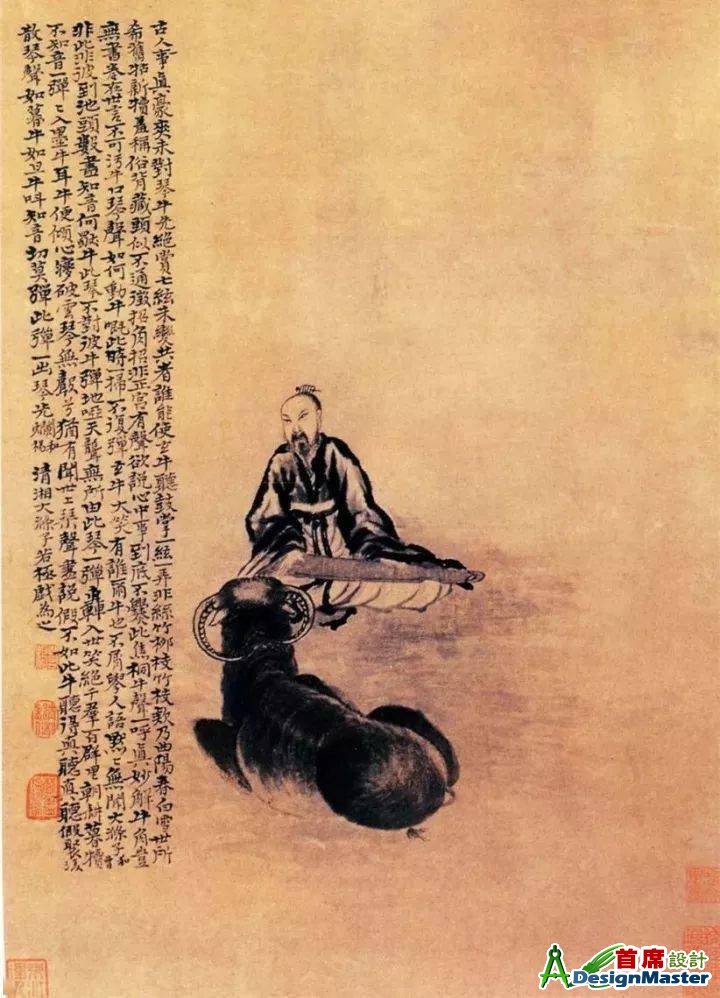 古人事真豪爽未對琴牛先絕賞七絃未變共者誰能使玄牛聽鼓掌一絃一弄非絲竹柳枝竹枝欸乃曲陽春白雪世所
希舊牯新犢盖稱俗背藏頭似不通徵招角招非正宮有聲欲說心中事到底不爨此焦桐牛聲一呼真妙解牛角豈
無書卷在世言不可污牛口琴聲如何動牛慨此時一掃不復彈玄牛大笑有誰爾牛也不屑學人語默ミ無聞大滌子和曹
非此非彼到池頭數盡知音何獨牛此琴不對彼牛彈地啞天聾無所由此琴一彈轟入世笑絕千羣百群里朝耕暮犢
不知音一彈ミ入墨牛耳牛便傾心夢破雲琴無聲兮猶有聞世上琴聲盡說假不如此牛聽得真聽真聽假聚復
散琴聲如暮牛如旦牛叫知音切莫彈此彈一出琴先爛和楊 清湘大滌子若極戲為之
首席設計
DesignMaster